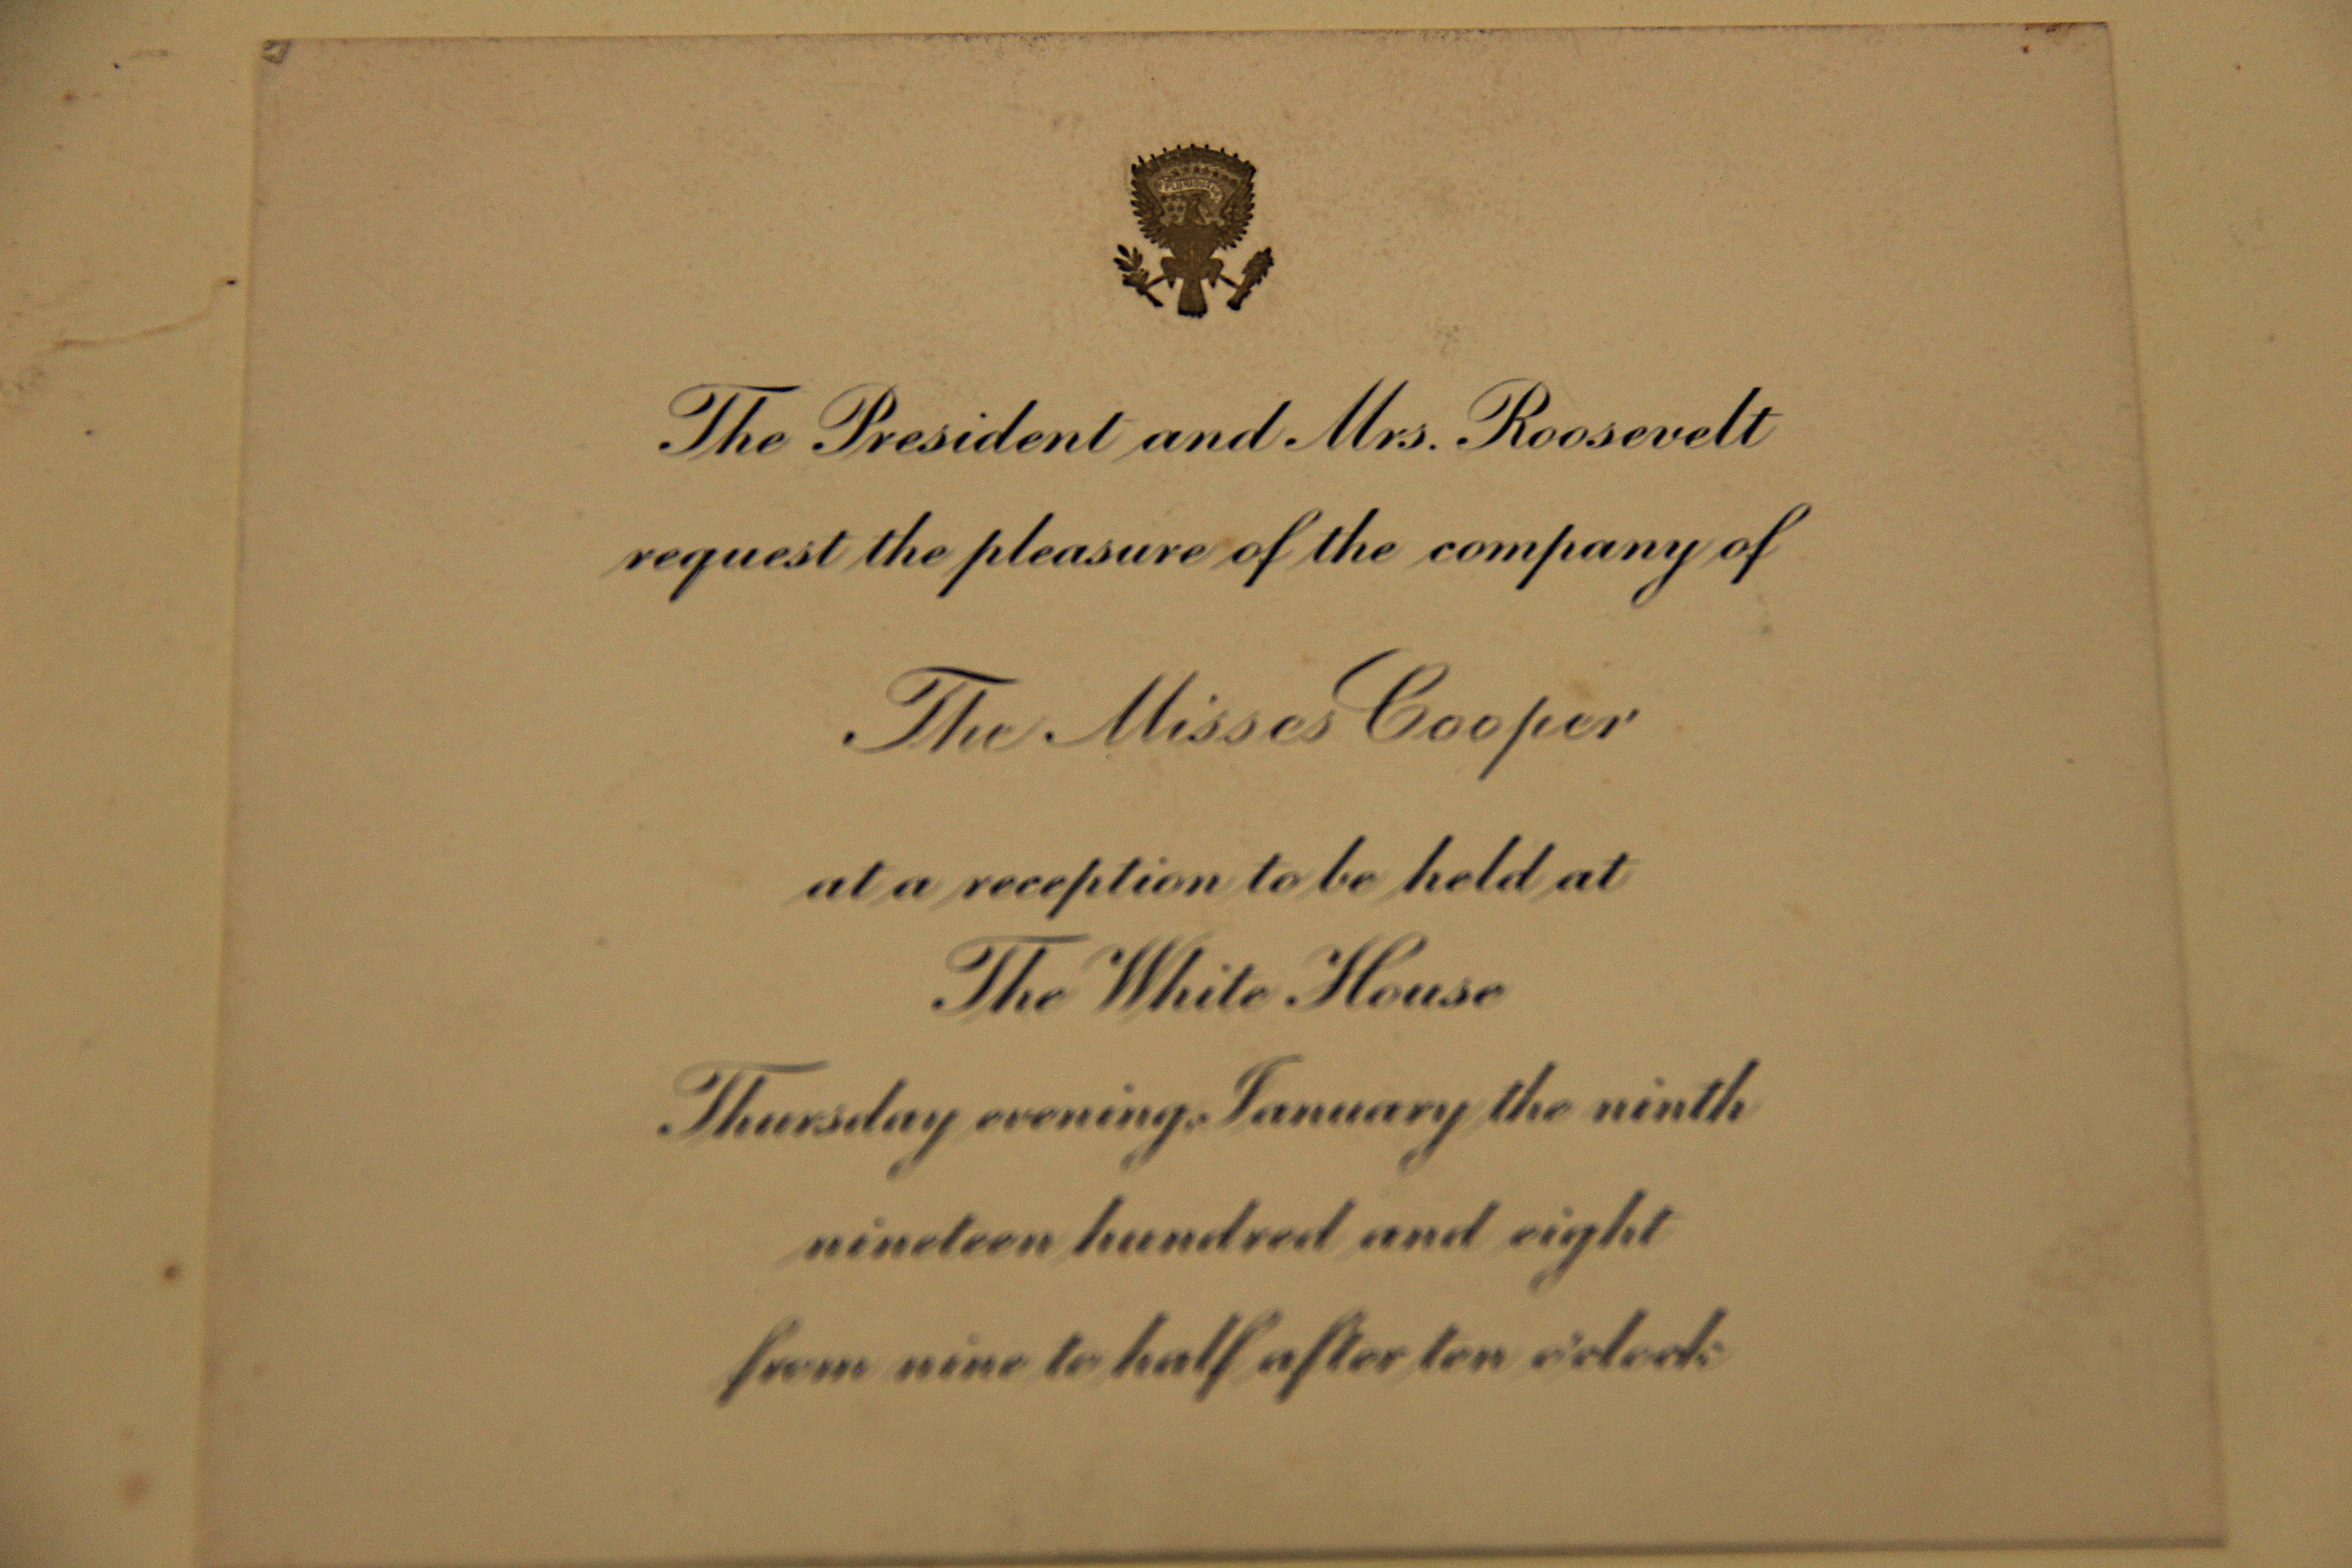 The President and Mrs. Roosevelt
request the pleasure of the company of
The Misses Cooper
at a reception to be held at
The White House
Thursday evening, January the ninth
nineteen hundred and eight
from nine to half after ten o'clock